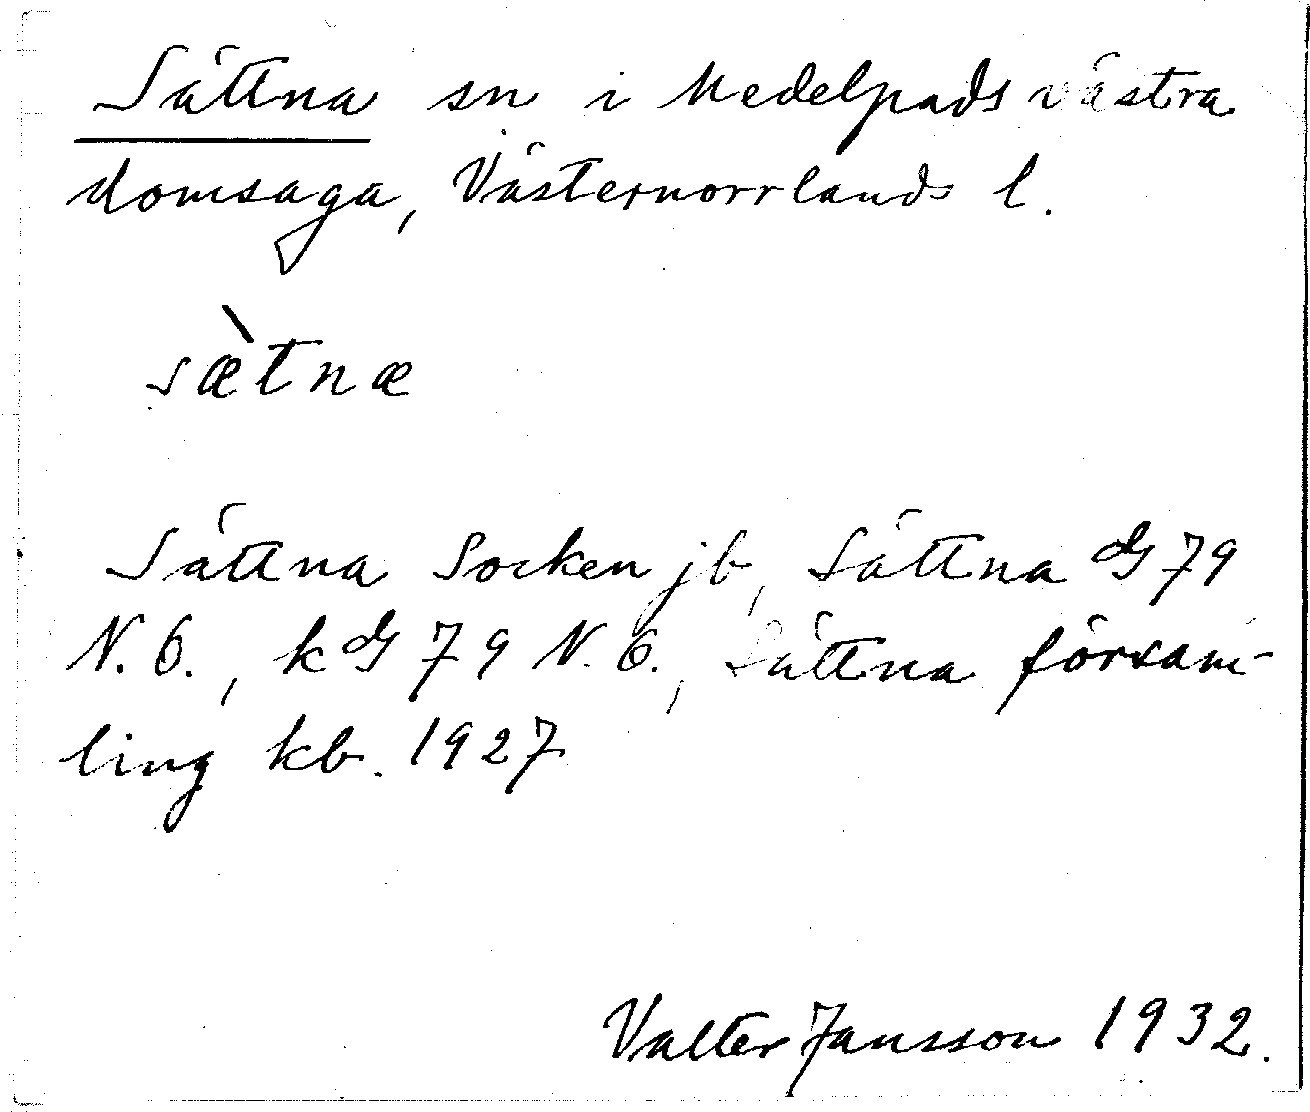 Sättna sn i Medelpads västra
domsaga, Västernorrlands l.
sæ̀tnæ
Sättna Socken jb, Sättna GS 79
N.O., kGS 79 N.O., Sättna försam-
ling kb. 1927
Valter Jansson 1932.